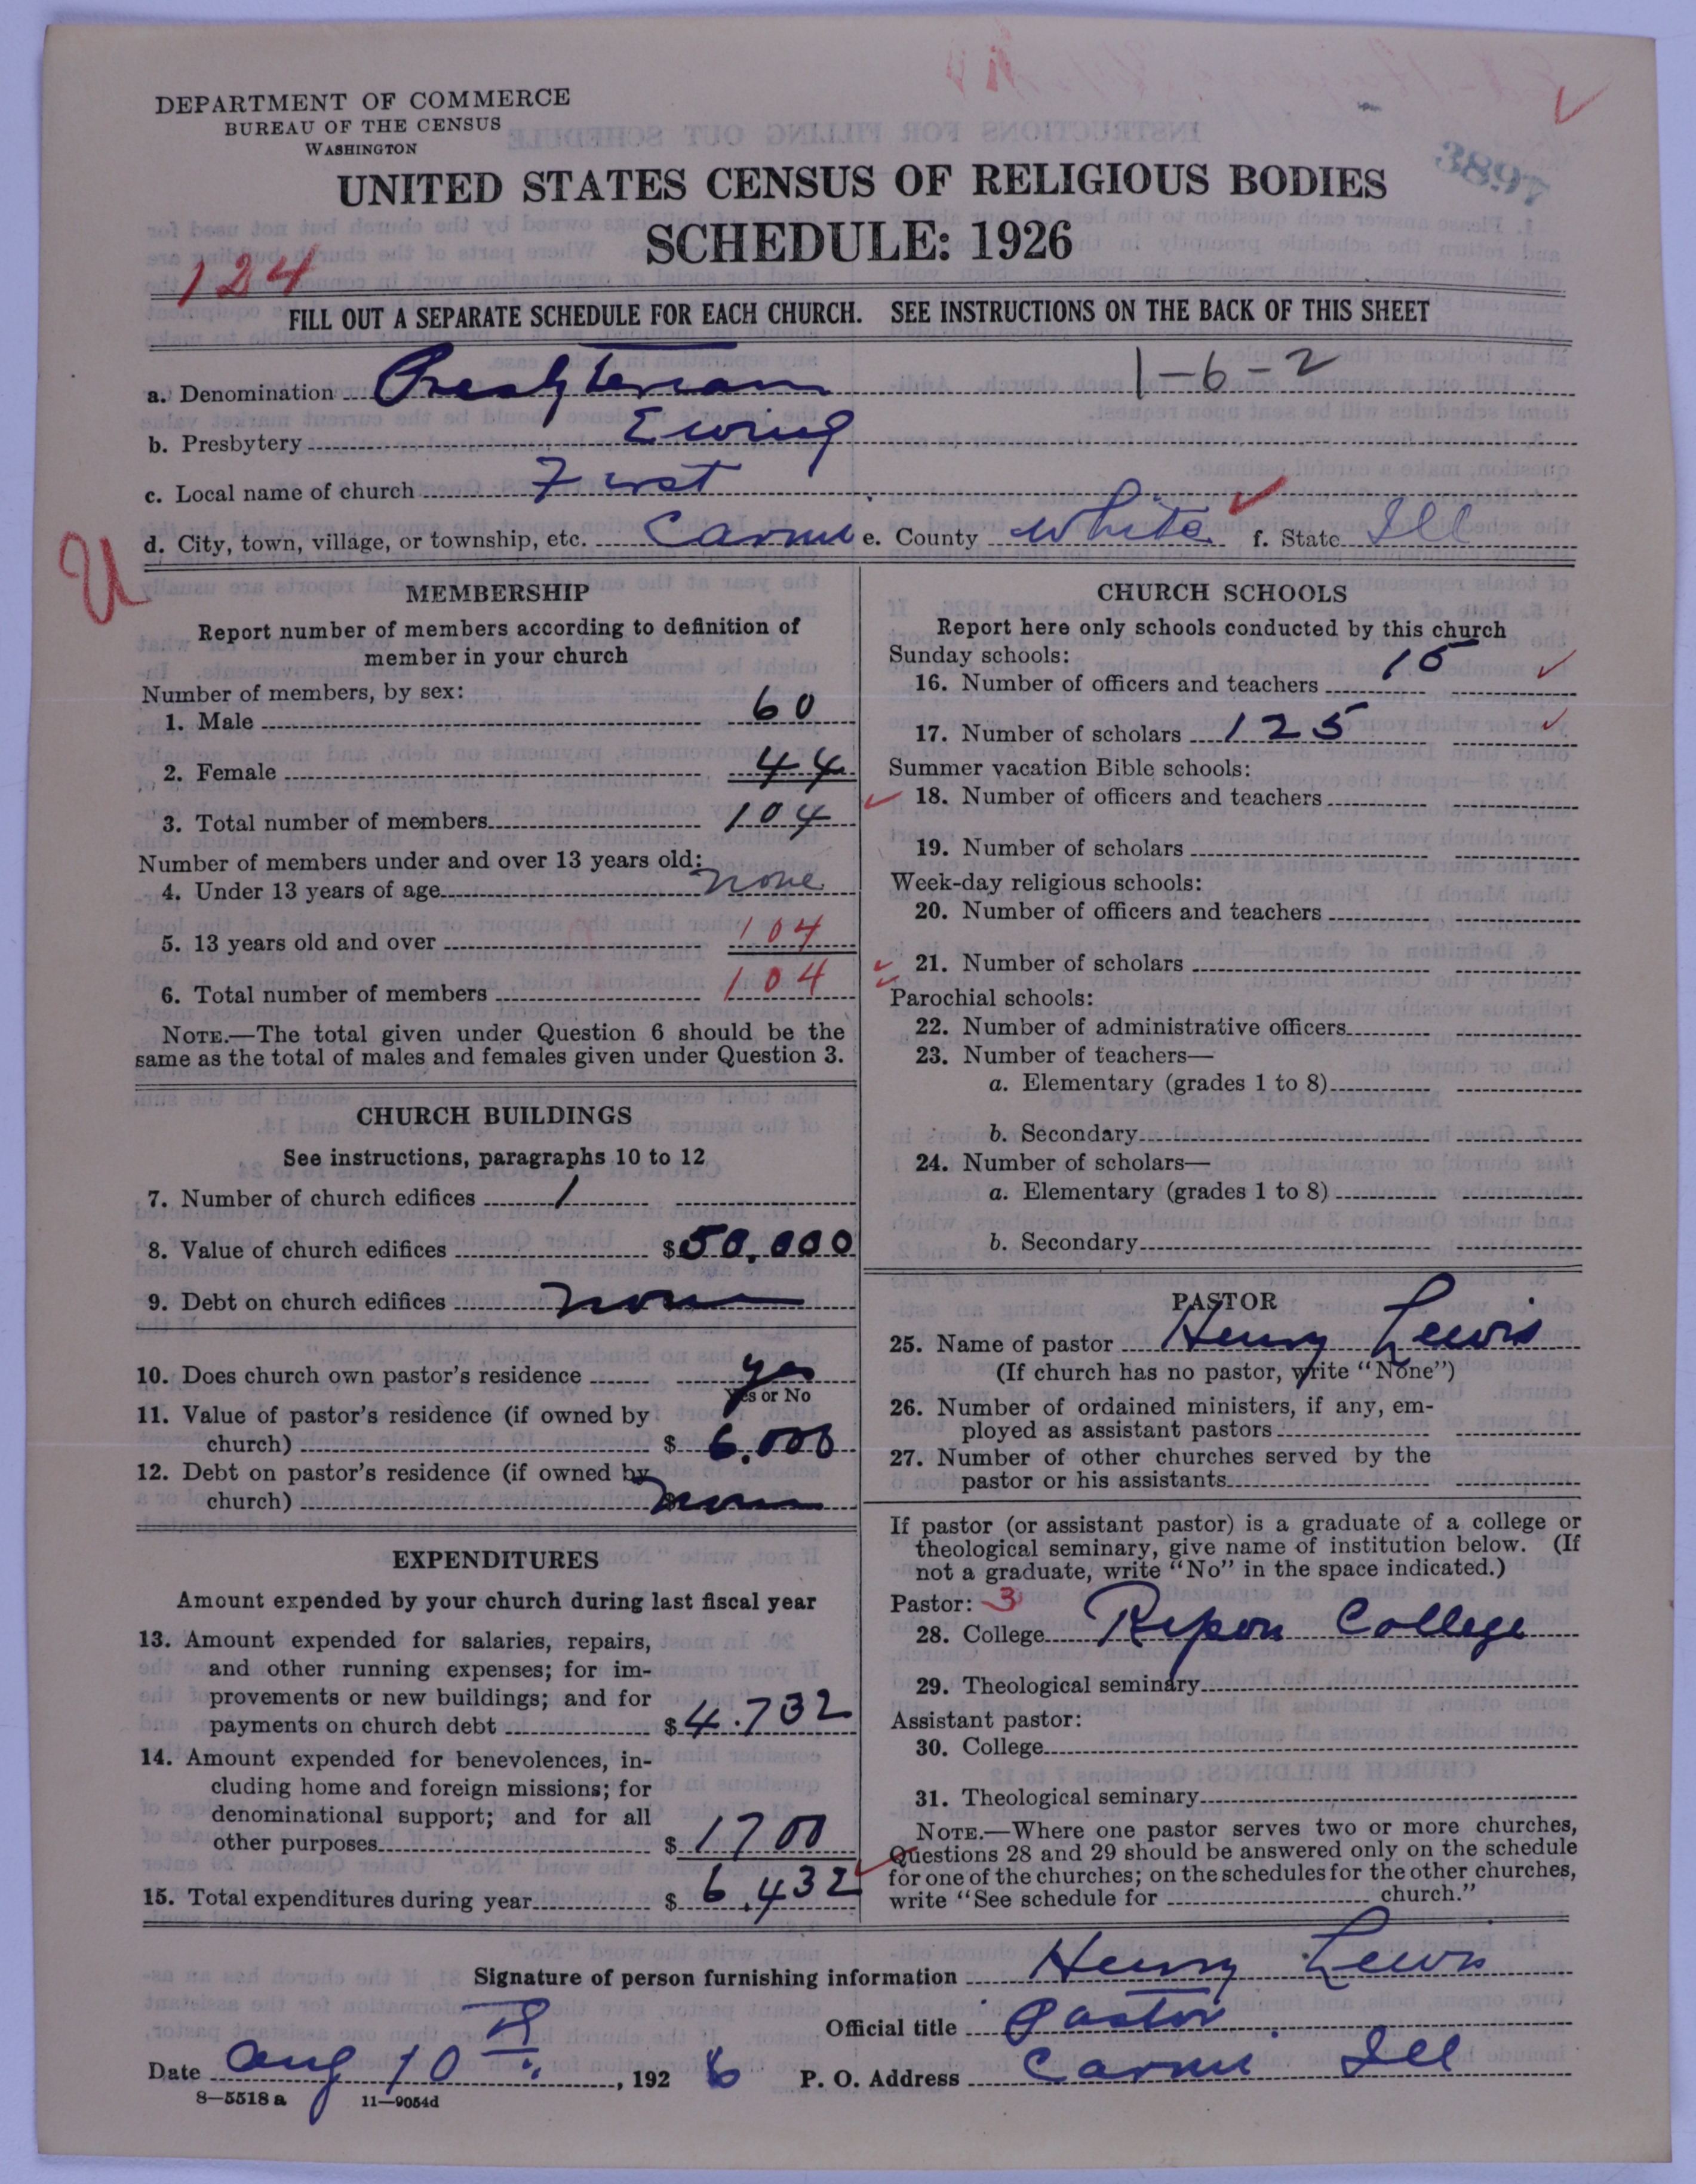 DEPARTMENT OF COMMERCE
BUREAU OF THE CENSUS
WASHINGTON
3897
UNITED STATES CENSUS OF RELIGIOUS BODIES
SCHEDULE: 1926
124
FILL OUT A SEPARATE SCHEDULE FOR EACH CHURCH. SEE INSTRUCTIONS ON THE BACK OF THIS SHEET
1-6-2
a. Denomination Presbyterian
b. Presbytery Ewing
c. Local name of church First
d. City, town, village, or township, etc. Carmi e. County White f. State Ill
U
MEMBERSHIP
Report number of members according to definition of
member in your church
Number of members, by sex:
1. Male 60
2. Female 44
3. Total number of members 104
Number of members under and over 13 years old:
4. Under 13 years of age none
5. 13 years old and over 104
6. Total number of members 104
NOTE.—The total given under Question 6 should be the
same as the total of males and females given under Question 3.
CHURCH BUILDINGS
See instructions, paragraphs 10 to 12
7. Number of church edifices 1
8. Value of church edifices $50,000
9. Debt on church edifices none
10. Does church own pastor's residence yes
Yes or No
11. Value of pastor's residence (if owned by
church) $ 6.000
12. Debt on pastor's residence (if owned by
church) none
EXPENDITURES
Amount expended by your church during last fiscal year
13. Amount expended for salaries, repairs,
and other running expenses; for im-
provements or new buildings; and for
payments on church debt $4.732
14. Amount expended for benevolences, in-
cluding home and foreign missions; for
denominational support; and for all
other purposes $ 1700
15. Total expenditures during year $ 6.432
CHURCH SCHOOLS
Report here only schools conducted by this church
Sunday schools:
16. Number of officers and teachers 15
17. Number of scholars 125
Summer vacation Bible schools:
18. Number of officers and teachers
19. Number of scholars
Week-day religious schools:
20. Number of officers and teachers
21. Number of scholars
Parochial schools:
22. Number of administrative officers
23. Number of teachers—
a. Elementary (grades 1 to 8)
b. Secondary
24. Number of scholars—
a. Elementary (grades 1 to 8)
b. Secondary
PASTOR
25. Name of pastor Henry Lewis
(If church has no pastor, write "None")
26. Number of ordained ministers, if any, em-
ployed as assistant pastors
27. Number of other churches served by the
pastor or his assistants
If pastor (or assistant pastor) is a graduate of a college or
theological seminary, give name of institution below. (If
not a graduate, write "No" in the space indicated.)
Pastor: 3
28. College Ripon College
29. Theological seminary
Assistant pastor:
30. College
31. Theological seminary
NOTE.—Where one pastor serves two or more churches,
Questions 28 and 29 should be answered only on the schedule
for one of the churches; on the schedules for the other churches,
write "See schedule for church."
Signature of person furnishing information Henry Lewis
Official title Pastor
Date Aug 10th, 1926 P. O. Address Carmi Ill
8—5518 a 11—9054d